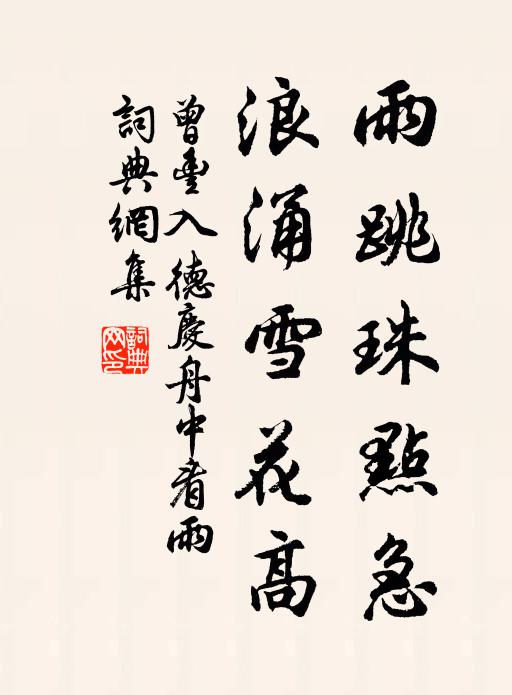 雨跳珠點急
浪涌雪花高
曾豐入德慶舟中看雨
詞典網集
詞典
网印